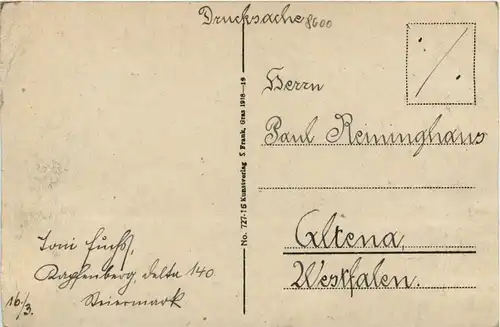 Drucksache 8600
Herrn
Paul Reininghaus
Altena,
Westfalen.
No. 727-16 Kunstverlag S Frank, Graz 1918—19
Toni Fuchs,
Kapfenberg, delta 140
Steiermark
16/3.